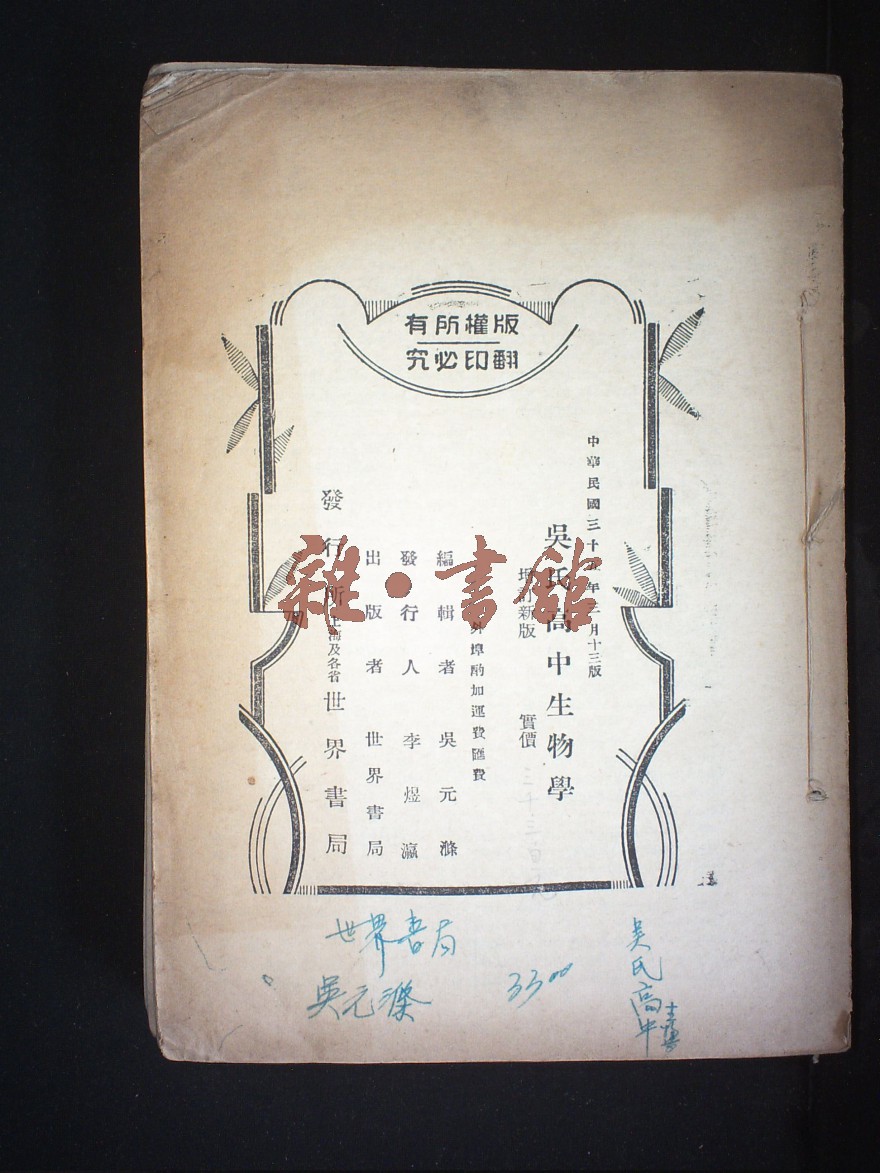 版權所有
翻印必究
中華民國三十年三月十三版
吳氏高中生物學
增訂新版 實價
外埠酌加運費匯費
編輯者 吳元滌
發行人 李煜瀛
出版者 世界書局
發行所 上海及各省 世界書局
雜·書館
世界書局
吳元滌
3300
吳氏高中生物學